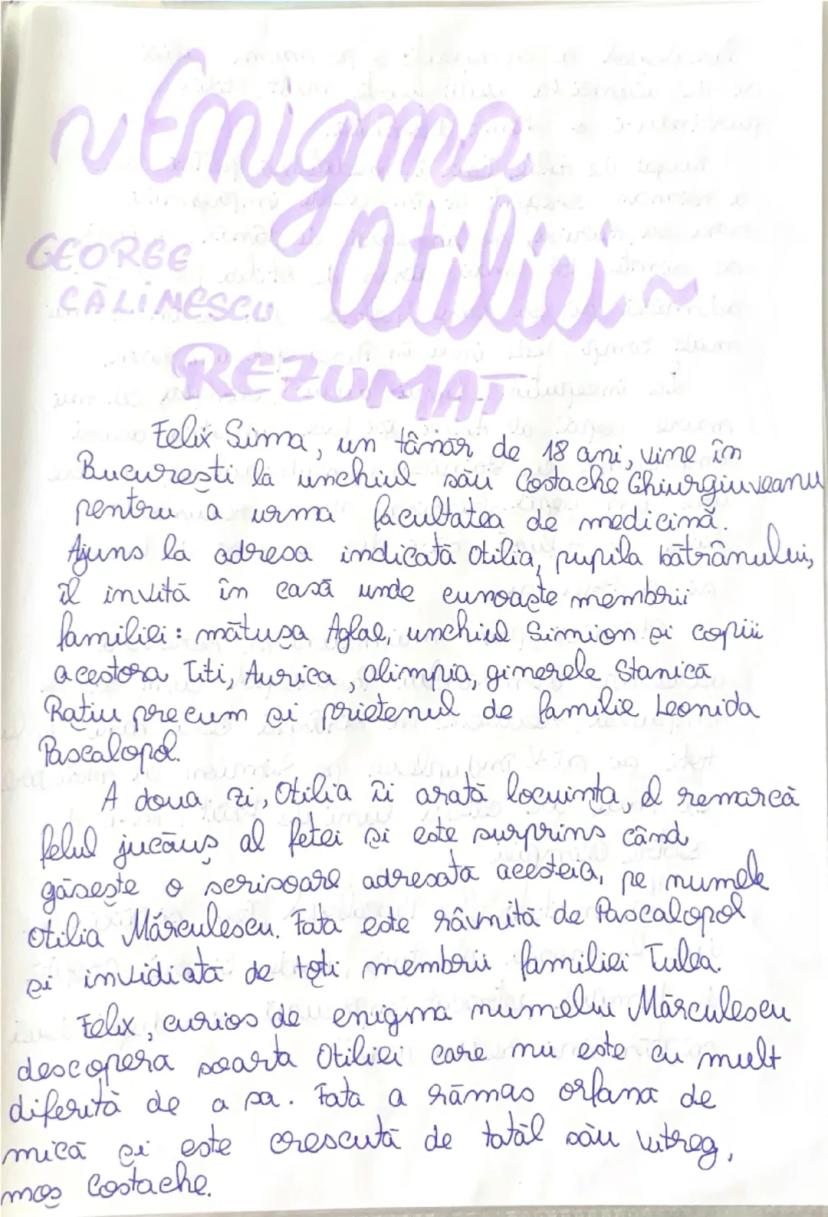 ~ Enigma
Otiliei ~
GEORGE
CĂLINESCU
REZUMAT
Felix Sima, un tânăr de 18 ani, vine în
București la unchiul său Costache Ghiurgiuveanu
pentru a urma facultatea de medicină.
Ajuns la adresa indicată Otilia, pupila bătrânului,
îl invită în casă unde cunoaște membrii
familiei: mătușa Aglae, unchiul Simion și copiii
acestora Titi, Aurica, Olimpia, ginerele Stanică
Rațiu precum și prietenul de familie Leonida
Pascalopol.
A doua zi, Otilia îi arată locuința, el remarcă
felul jucăuș al fetei și este surprins când
găsește o scrisoare adresată acesteia, pe numele
Otilia Mărculescu. Fata este râvnită de Pascalopol
și invidiată de toți membrii familiei Tulea.
Felix, curios de enigma numelui Mărculescu
descoperă soarta Otiliei care nu este cu mult
diferită de a sa. Fata a rămas orfană de
mică și este crescută de tatăl său vitreg,
moș Costache.